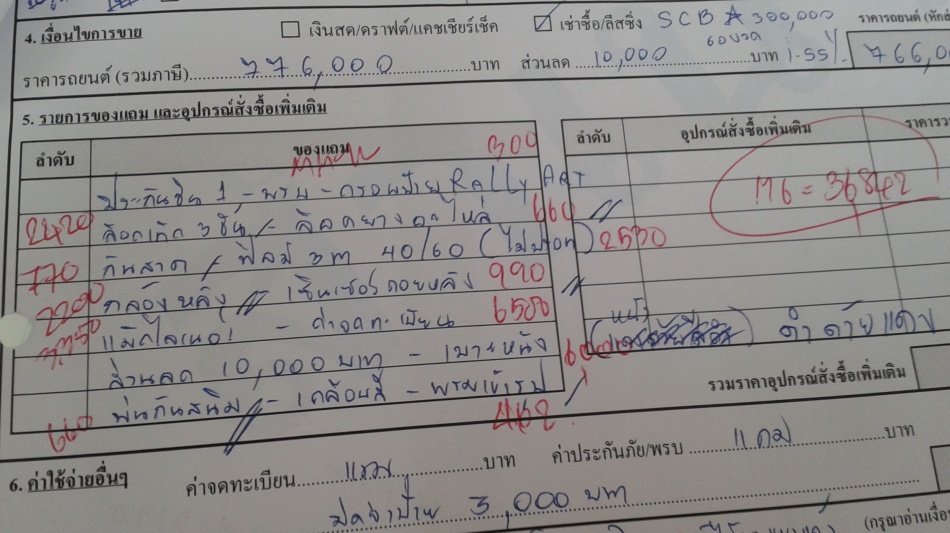 4. เงื่อนไขการขาย เงินสด/ดราฟต์/แคชเชียร์เช็ค เช่าซื้อ/ลีสซิ่ง SCB 300,000 ราคารถยนต์
60 งวด
ราคารถยนต์ (รวมภาษี) 776,000 บาท ส่วนลด 10,000 บาท 1.55% 766,0
5. รายการของแถม และอุปกรณ์สั่งซื้อเพิ่มเติม
ลำดับ ของแถม 300 ลำดับ อุปกรณ์สั่งซื้อเพิ่มเติม
ประกันชั้น 1 - พรบ - กรอบป้าย Rally ART M6 = 36842
2420 ล็อคเกียร์ 3 ชิ้น / ล็อคยางอะไหล่ 660
770 กันสาด / ฟิล์ม 3m 40/60 (ไม่ปรอท) 2530
2200 กล้องหลัง - เซ็นเซอร์ถอยหลัง 990
- ค่าจดทะเบียน
ส่วนลด 10,000 บาท - เบาะหนัง
ดำด้ายแดง
660 พ่นกันสนิม - เคลือบสี - พรมเข้ารูป
รวมราคาอุปกรณ์สั่งซื้อเพิ่มเติม
6. ค่าใช้จ่ายอื่นๆ ค่าจดทะเบียน แถม บาท ค่าประกันภัย/พรบ แถม บาท
มัดจำป้าย 3,000 บาท